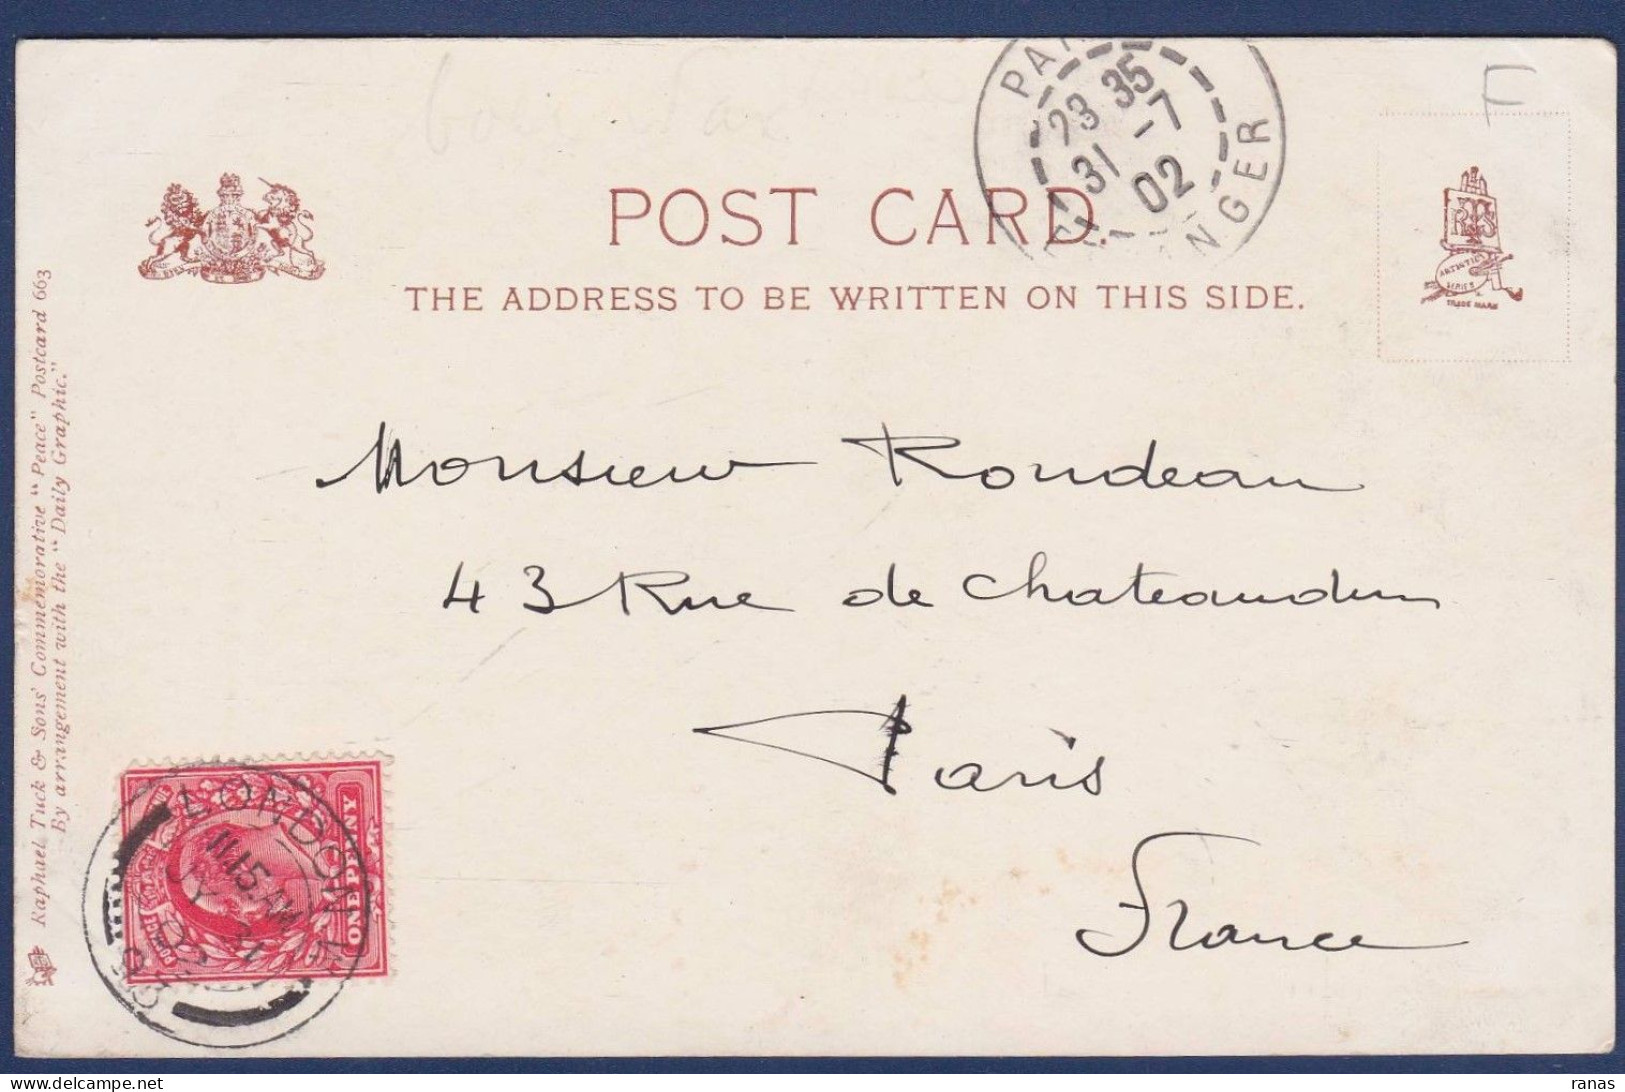 F
PA
23 35
31 -7
02
NGER
POST CARD.
THE ADDRESS TO BE WRITTEN ON THIS SIDE.
R T S
ARTISTIC
SERIES
TRADE MARK
Monsieur Rondeau
43 Rue de Chateaudun
Paris
France
Raphael Tuck & Sons' Commemorative "Peace" Postcard 663
By arrangement with the "Daily Graphic."
LONDON
11.15 AM
JY 31
02
ONE PENNY
delcampe.net
ranas